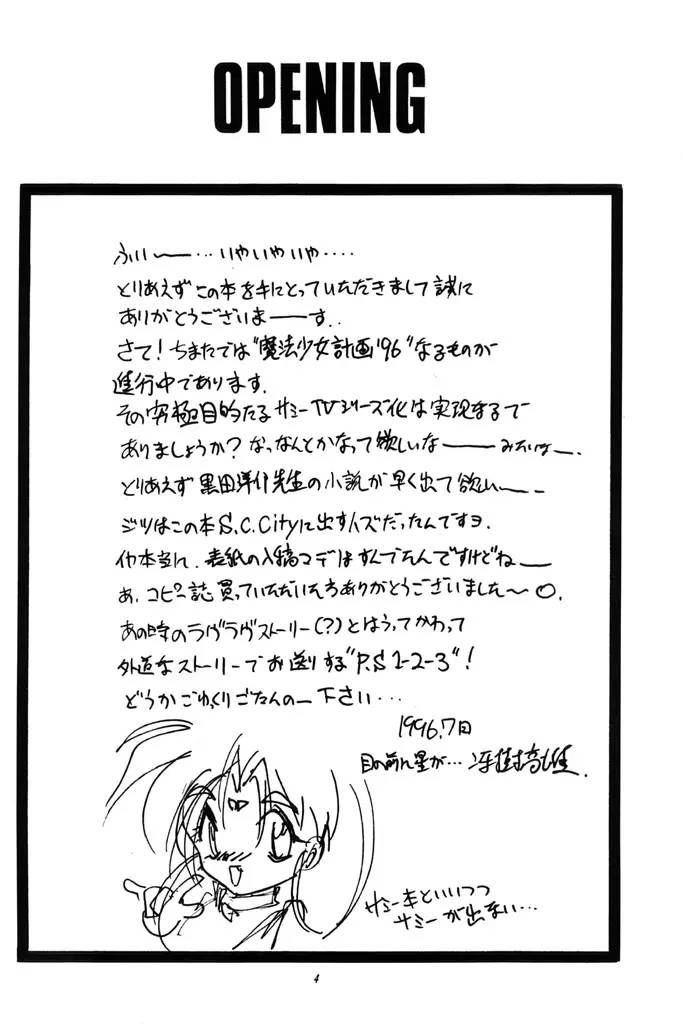 OPENING
ふいー……いやいやいや‥‥
とりあえずこの本を手にとっていただきまして誠に
ありがとうございまーーす‥
さて!ちまたでは"魔法少女計画'96"なるものが
進行中であります.
その究極目的たるサミーTVシリーズ化は実現するで
ありましょうか?なっなんとかなって欲しいなーーみたいなー.
とりあえず黒田洋介先生の小説が早く出て欲しいーー
ジツはこの本S.C.Cityに出すハズだったんですヨ.
イヤ本当に.表紙の入稿マデはすんでたんですけどねー
あ.コピー誌買っていただいた方ありがとうございました〜○.
あの時のラヴラヴストーリー(?)とはうってかわって
外道なストーリーでお送りする"P.S 1-2-3"!
どうかごゆっくりごたんのー下さい…
1996.7日
目の前に星が…
サミー本といいつつ
サミーが出ない…
4